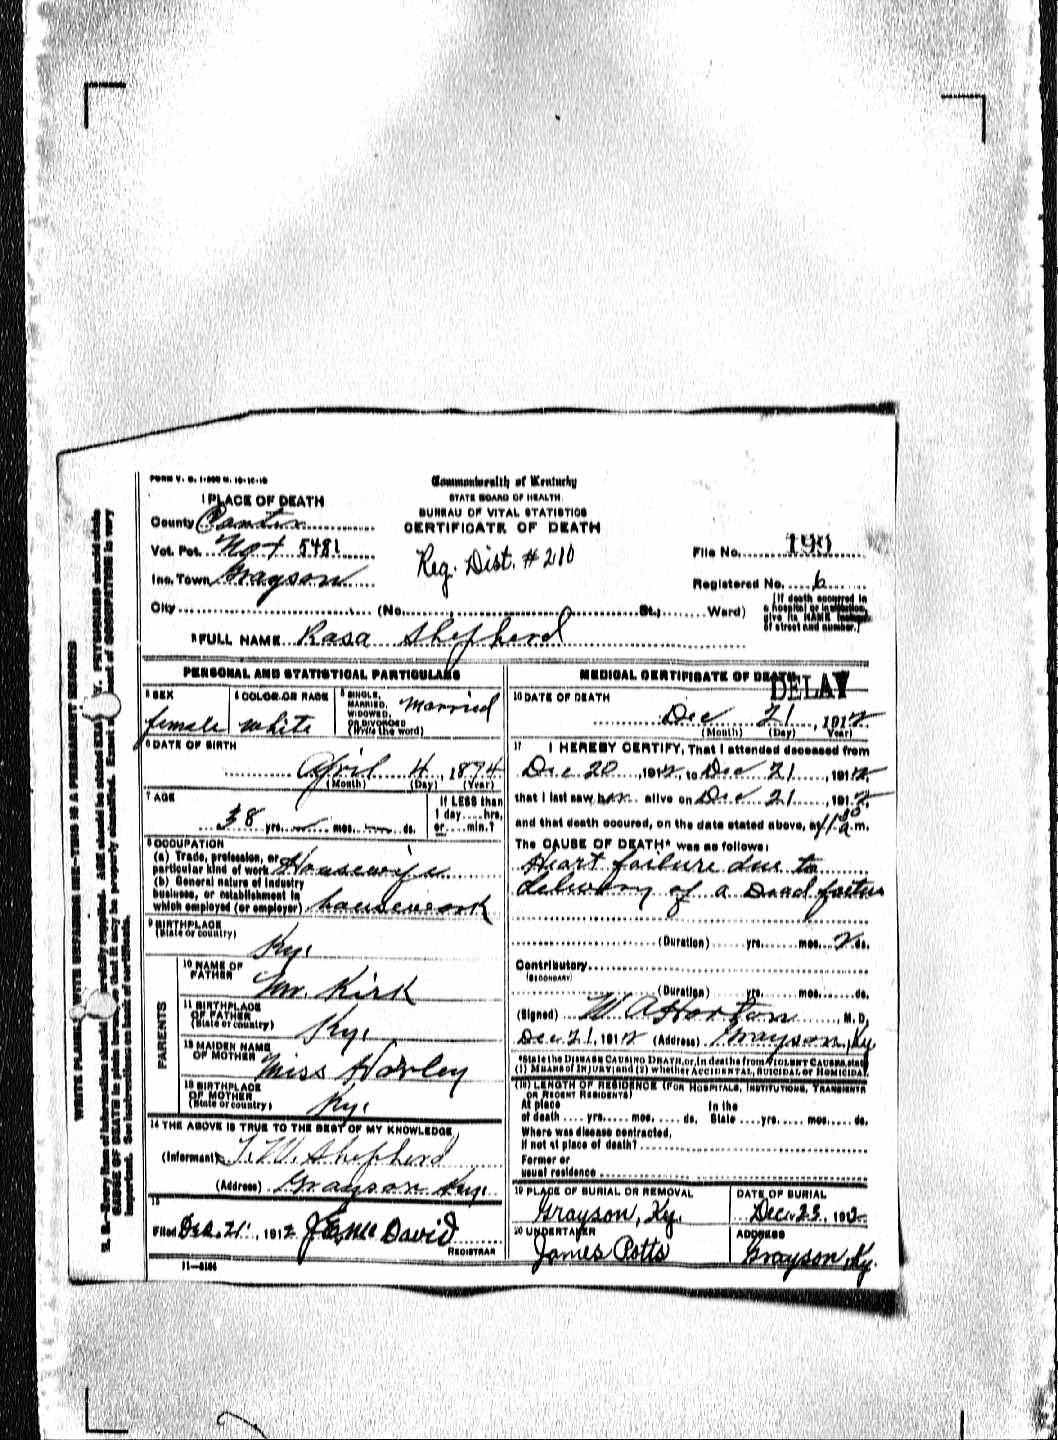 FORM V. S. 1-
Commonwealth of Kentucky
STATE BOARD OF HEALTH.
BUREAU OF VITAL STATISTICS
CERTIFICATE OF DEATH
1 PLACE OF DEATH
County Carter
Vot. Pct. No 1 5481
Inc. Town Grayson
City (No. St.; Ward)
Reg. Dist. #210
File No. 199
Registered No. 6
[If death occurred in a hospital or institution, give its NAME instead of street and number.]
2 FULL NAME Rasa Shepherd
PERSONAL AND STATISTICAL PARTICULARS
3 SEX female
4 COLOR OR RACE white
5 SINGLE, MARRIED, WIDOWED, OR DIVORCED (Write the word) married
6 DATE OF BIRTH
April 4, 1874
(Month) (Day) (Year)
7 AGE
38 yrs. mos. ds.
If LESS than 1 day....hrs. or....min.?
8 OCCUPATION
(a) Trade, profession, or particular kind of work Housewife
(b) General nature of industry business, or establishment in which employed (or employer) housework
9 BIRTHPLACE (State or country)
Ky.
PARENTS
10 NAME OF FATHER Mr. Kirk
11 BIRTHPLACE OF FATHER (State or country) Ky.
12 MAIDEN NAME OF MOTHER Miss Horley
13 BIRTHPLACE OF MOTHER (State or country) Ky.
14 THE ABOVE IS TRUE TO THE BEST OF MY KNOWLEDGE
(Informant) T. W. Shepherd
(Address) Grayson Ky.
15
Filed Dec. 21, 1912 REGISTRAR
11-
MEDICAL CERTIFICATE OF DEATH
DELAY
16 DATE OF DEATH
Dec 21, 1912
(Month) (Day) (Year)
17 I HEREBY CERTIFY, That I attended deceased from
Dec 20, 1912, to Dec 21, 1912
that I last saw her alive on Dec 21, 1912,
and that death occured, on the date stated above, at a.m.
The CAUSE OF DEATH* was as follows:
Heart failure due to
delivery of a Dead foetus
(Duration) yrs. mos. 2 ds.
Contributory
(SECONDARY)
(Duration) yrs. mos. ds.
(Signed) W A Horton, M. D.
Dec 21, 1912 (Address) Grayson, Ky
*State the DISEASE CAUSING DEATH, or, in deaths from VIOLENT CAUSES, state (1) MEANS of INJURY; and (2) whether ACCIDENTAL, SUICIDAL or HOMICIDAL.
(18) LENGTH OF RESIDENCE (FOR HOSPITALS, INSTITUTIONS, TRANSIENTS OR RECENT RESIDENTS)
At place of death .... yrs. mos. ds. In the State ....yrs. mos. ds.
Where was disease contracted,
If not at place of death?
Former or
usual residence
19 PLACE OF BURIAL OR REMOVAL
Grayson, Ky.
DATE OF BURIAL
Dec. 23, 1912
20 UNDERTAKER
James Potts
ADDRESS
Grayson, Ky.